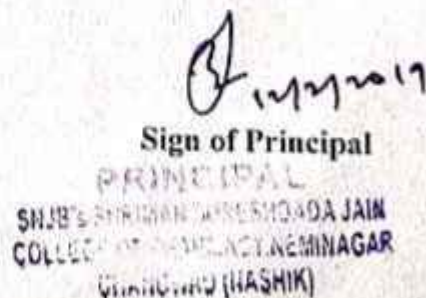 12/2/2019
Sign of Principal
PRINCIPAL
SNJB's SHRIMAN SURESHDADA JAIN
COLLEGE OF PHARMACY, NEMINAGAR
CHANDWAD (NASHIK)